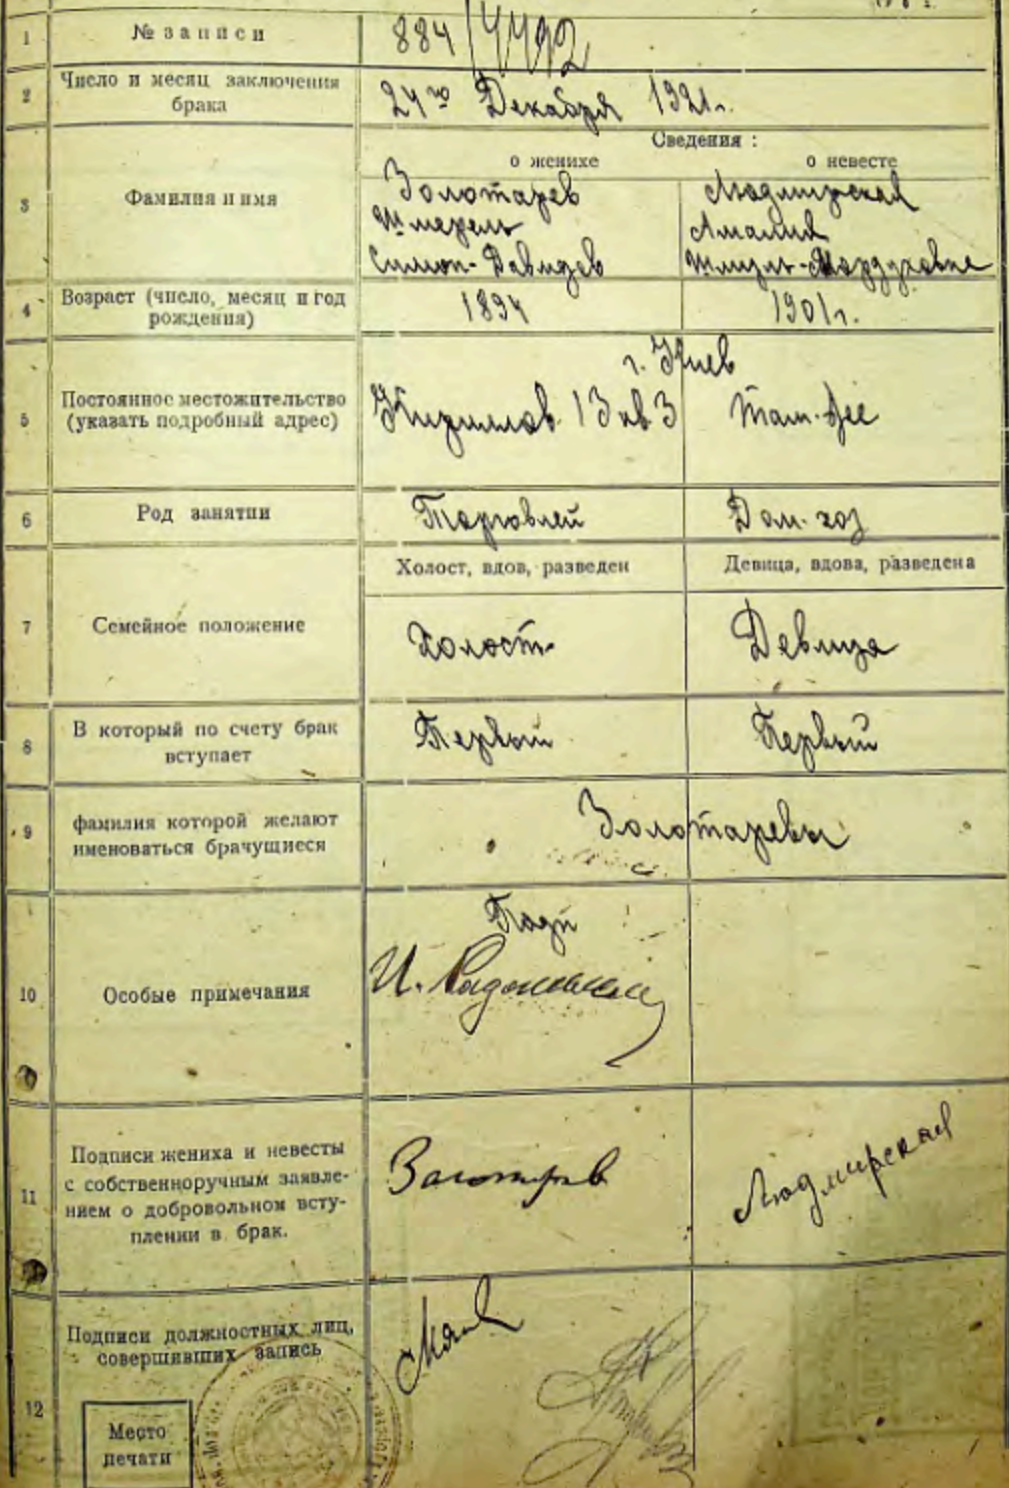 1 № записи 884/4492
2 Число и месяц заключения
брака
24го Декабря 1921г.
Сведения :
о женихе о невесте
3 Фамилия и имя
Золотарев Людмирская
Шмерель Амалия
Симон-Давидов Шмуль-Мордуховна
4 Возраст (число, месяц и год
рождения)
1894 1901г.
г. Киев
5 Постоянное местожительство
(указать подробный адрес)
Кириллов. 13 кв 3 Там-же
6 Род занятии Торговлей Дом. хоз
Холост, вдов, разведен Девица, вдова, разведена
7 Семейное положение Холост Девица
8 В который по счету брак
вступает
Первый Первый
9 фамилия которой желают
именоваться брачущиеся
Золотаревы
10 Особые примечания
11 Подписи жениха и невесты
с собственноручным заявле-
нием о добровольном всту-
плении в брак.
Людмирская
12 Подписи должностных лиц,
совершивших запись
Место
печати